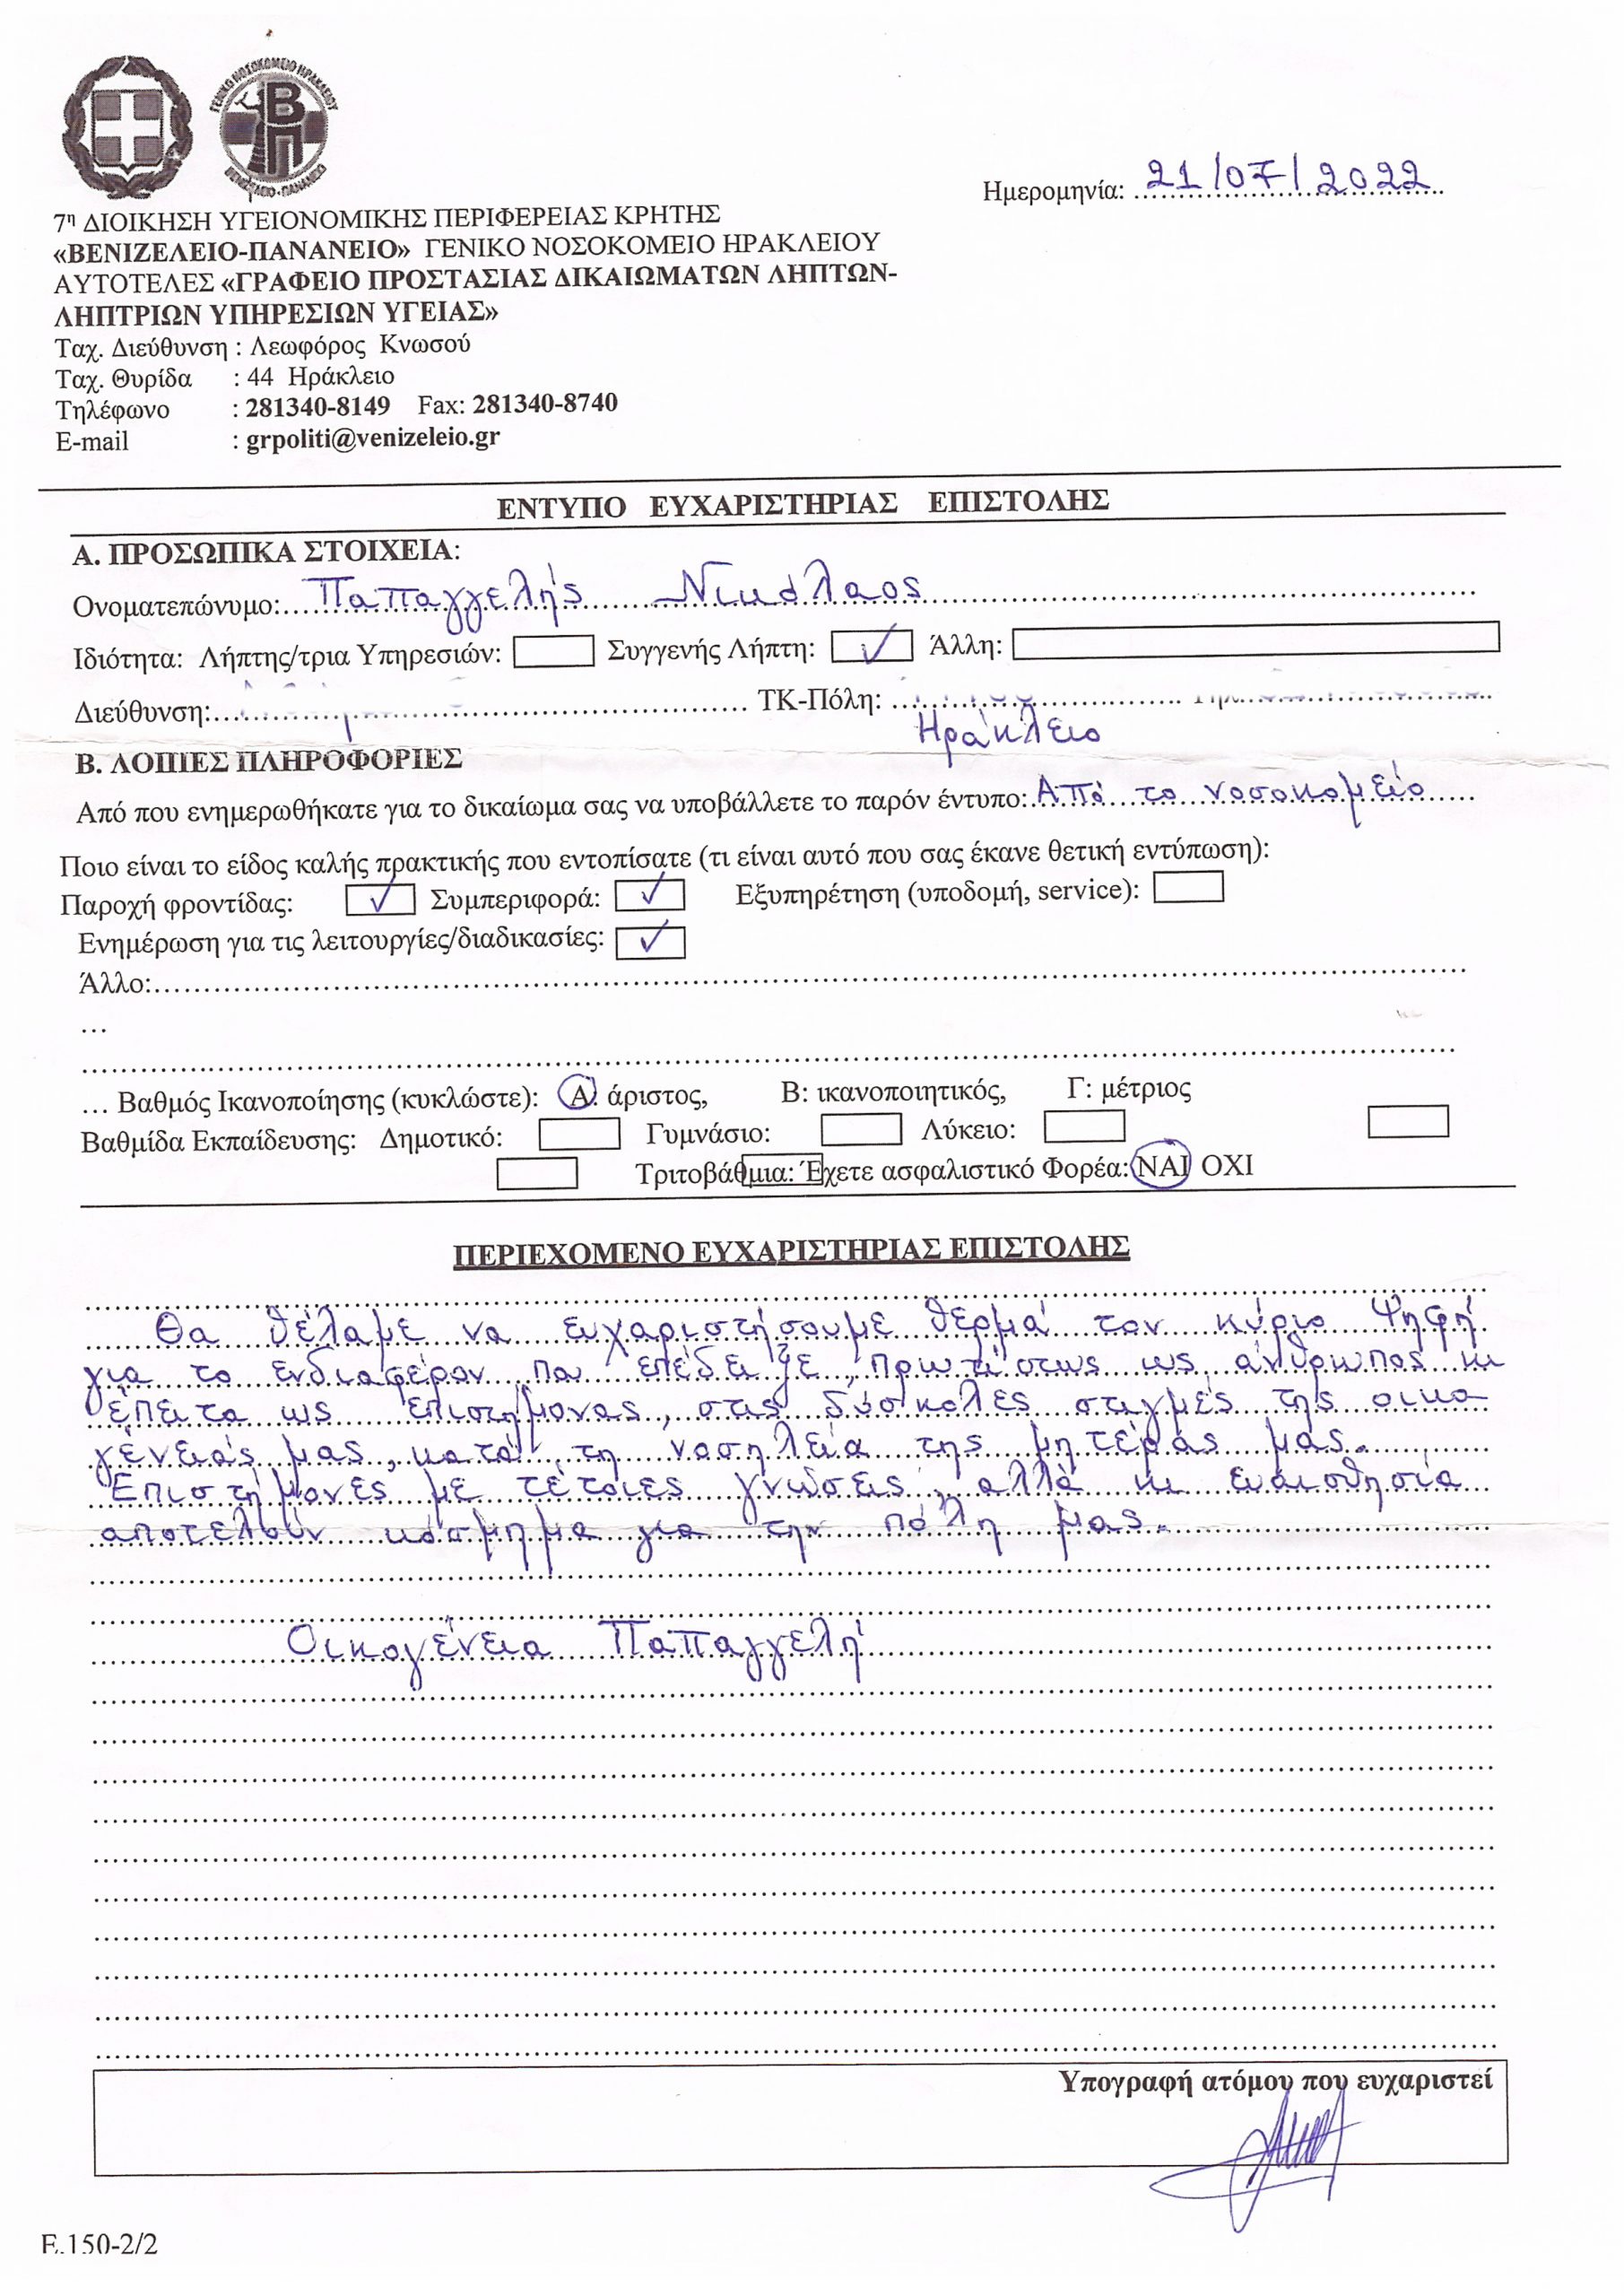 ΓΕΝΙΚΟ ΝΟΣΟΚΟΜΕΙΟ ΗΡΑΚΛΕΙΟΥ
Β
Π
ΒΕΝΙΖΕΛΕΙΟ-ΠΑΝΑΝΕΙΟ
Ημερομηνία: 21/07/2022
7η ΔΙΟΙΚΗΣΗ ΥΓΕΙΟΝΟΜΙΚΗΣ ΠΕΡΙΦΕΡΕΙΑΣ ΚΡΗΤΗΣ
«ΒΕΝΙΖΕΛΕΙΟ-ΠΑΝΑΝΕΙΟ» ΓΕΝΙΚΟ ΝΟΣΟΚΟΜΕΙΟ ΗΡΑΚΛΕΙΟΥ
ΑΥΤΟΤΕΛΕΣ «ΓΡΑΦΕΙΟ ΠΡΟΣΤΑΣΙΑΣ ΔΙΚΑΙΩΜΑΤΩΝ ΛΗΠΤΩΝ-
ΛΗΠΤΡΙΩΝ ΥΠΗΡΕΣΙΩΝ ΥΓΕΙΑΣ»
Ταχ. Διεύθυνση : Λεωφόρος Κνωσού
Ταχ. Θυρίδα : 44 Ηράκλειο
Τηλέφωνο : 281340-8149 Fax: 281340-8740
E-mail : grpoliti@venizeleio.gr
ΕΝΤΥΠΟ ΕΥΧΑΡΙΣΤΗΡΙΑΣ ΕΠΙΣΤΟΛΗΣ
Α. ΠΡΟΣΩΠΙΚΑ ΣΤΟΙΧΕΙΑ:
Ονοματεπώνυμο: Παπαγγελής Νικόλαος
Ιδιότητα: Λήπτης/τρια Υπηρεσιών: Συγγενής Λήπτη: ✓ Άλλη:
Διεύθυνση: ΤΚ-Πόλη:
Ηράκλειο
Β. ΛΟΠΙΕΣ ΠΛΗΡΟΦΟΡΙΕΣ
Από που ενημερωθήκατε για το δικαίωμα σας να υποβάλλετε το παρόν έντυπο: Από το νοσοκομείο
Ποιο είναι το είδος καλής πρακτικής που εντοπίσατε (τι είναι αυτό που σας έκανε θετική εντύπωση):
Παροχή φροντίδας: ✓ Συμπεριφορά: ✓ Εξυπηρέτηση (υποδομή, service):
Ενημέρωση για τις λειτουργίες/διαδικασίες: ✓
Άλλο:
…
… Βαθμός Ικανοποίησης (κυκλώστε): Α: άριστος, Β: ικανοποιητικός, Γ: μέτριος
Βαθμίδα Εκπαίδευσης: Δημοτικό: Γυμνάσιο: Λύκειο:
Τριτοβάθμια: Έχετε ασφαλιστικό Φορέα: ΝΑΙ ΟΧΙ
ΠΕΡΙΕΧΟΜΕΝΟ ΕΥΧΑΡΙΣΤΗΡΙΑΣ ΕΠΙΣΤΟΛΗΣ
Θα θέλαμε να ευχαριστήσουμε θερμά τον κύριο Ψηφή
για το ενδιαφέρον που επέδειξε, πρωτίστως ως άνθρωπος κι
έπειτα ως επιστήμονας, στις δύσκολες στιγμές της οικο
γένειάς μας, κατά τη νοσηλεία της μητέρας μας.
Επιστήμονες με τέτοιες γνώσεις, αλλά κι ευαισθησία
αποτελούν κόσμημα για την πόλη μας.
Οικογένεια Παπαγγελή
Υπογραφή ατόμου που ευχαριστεί
Ε.150-2/2